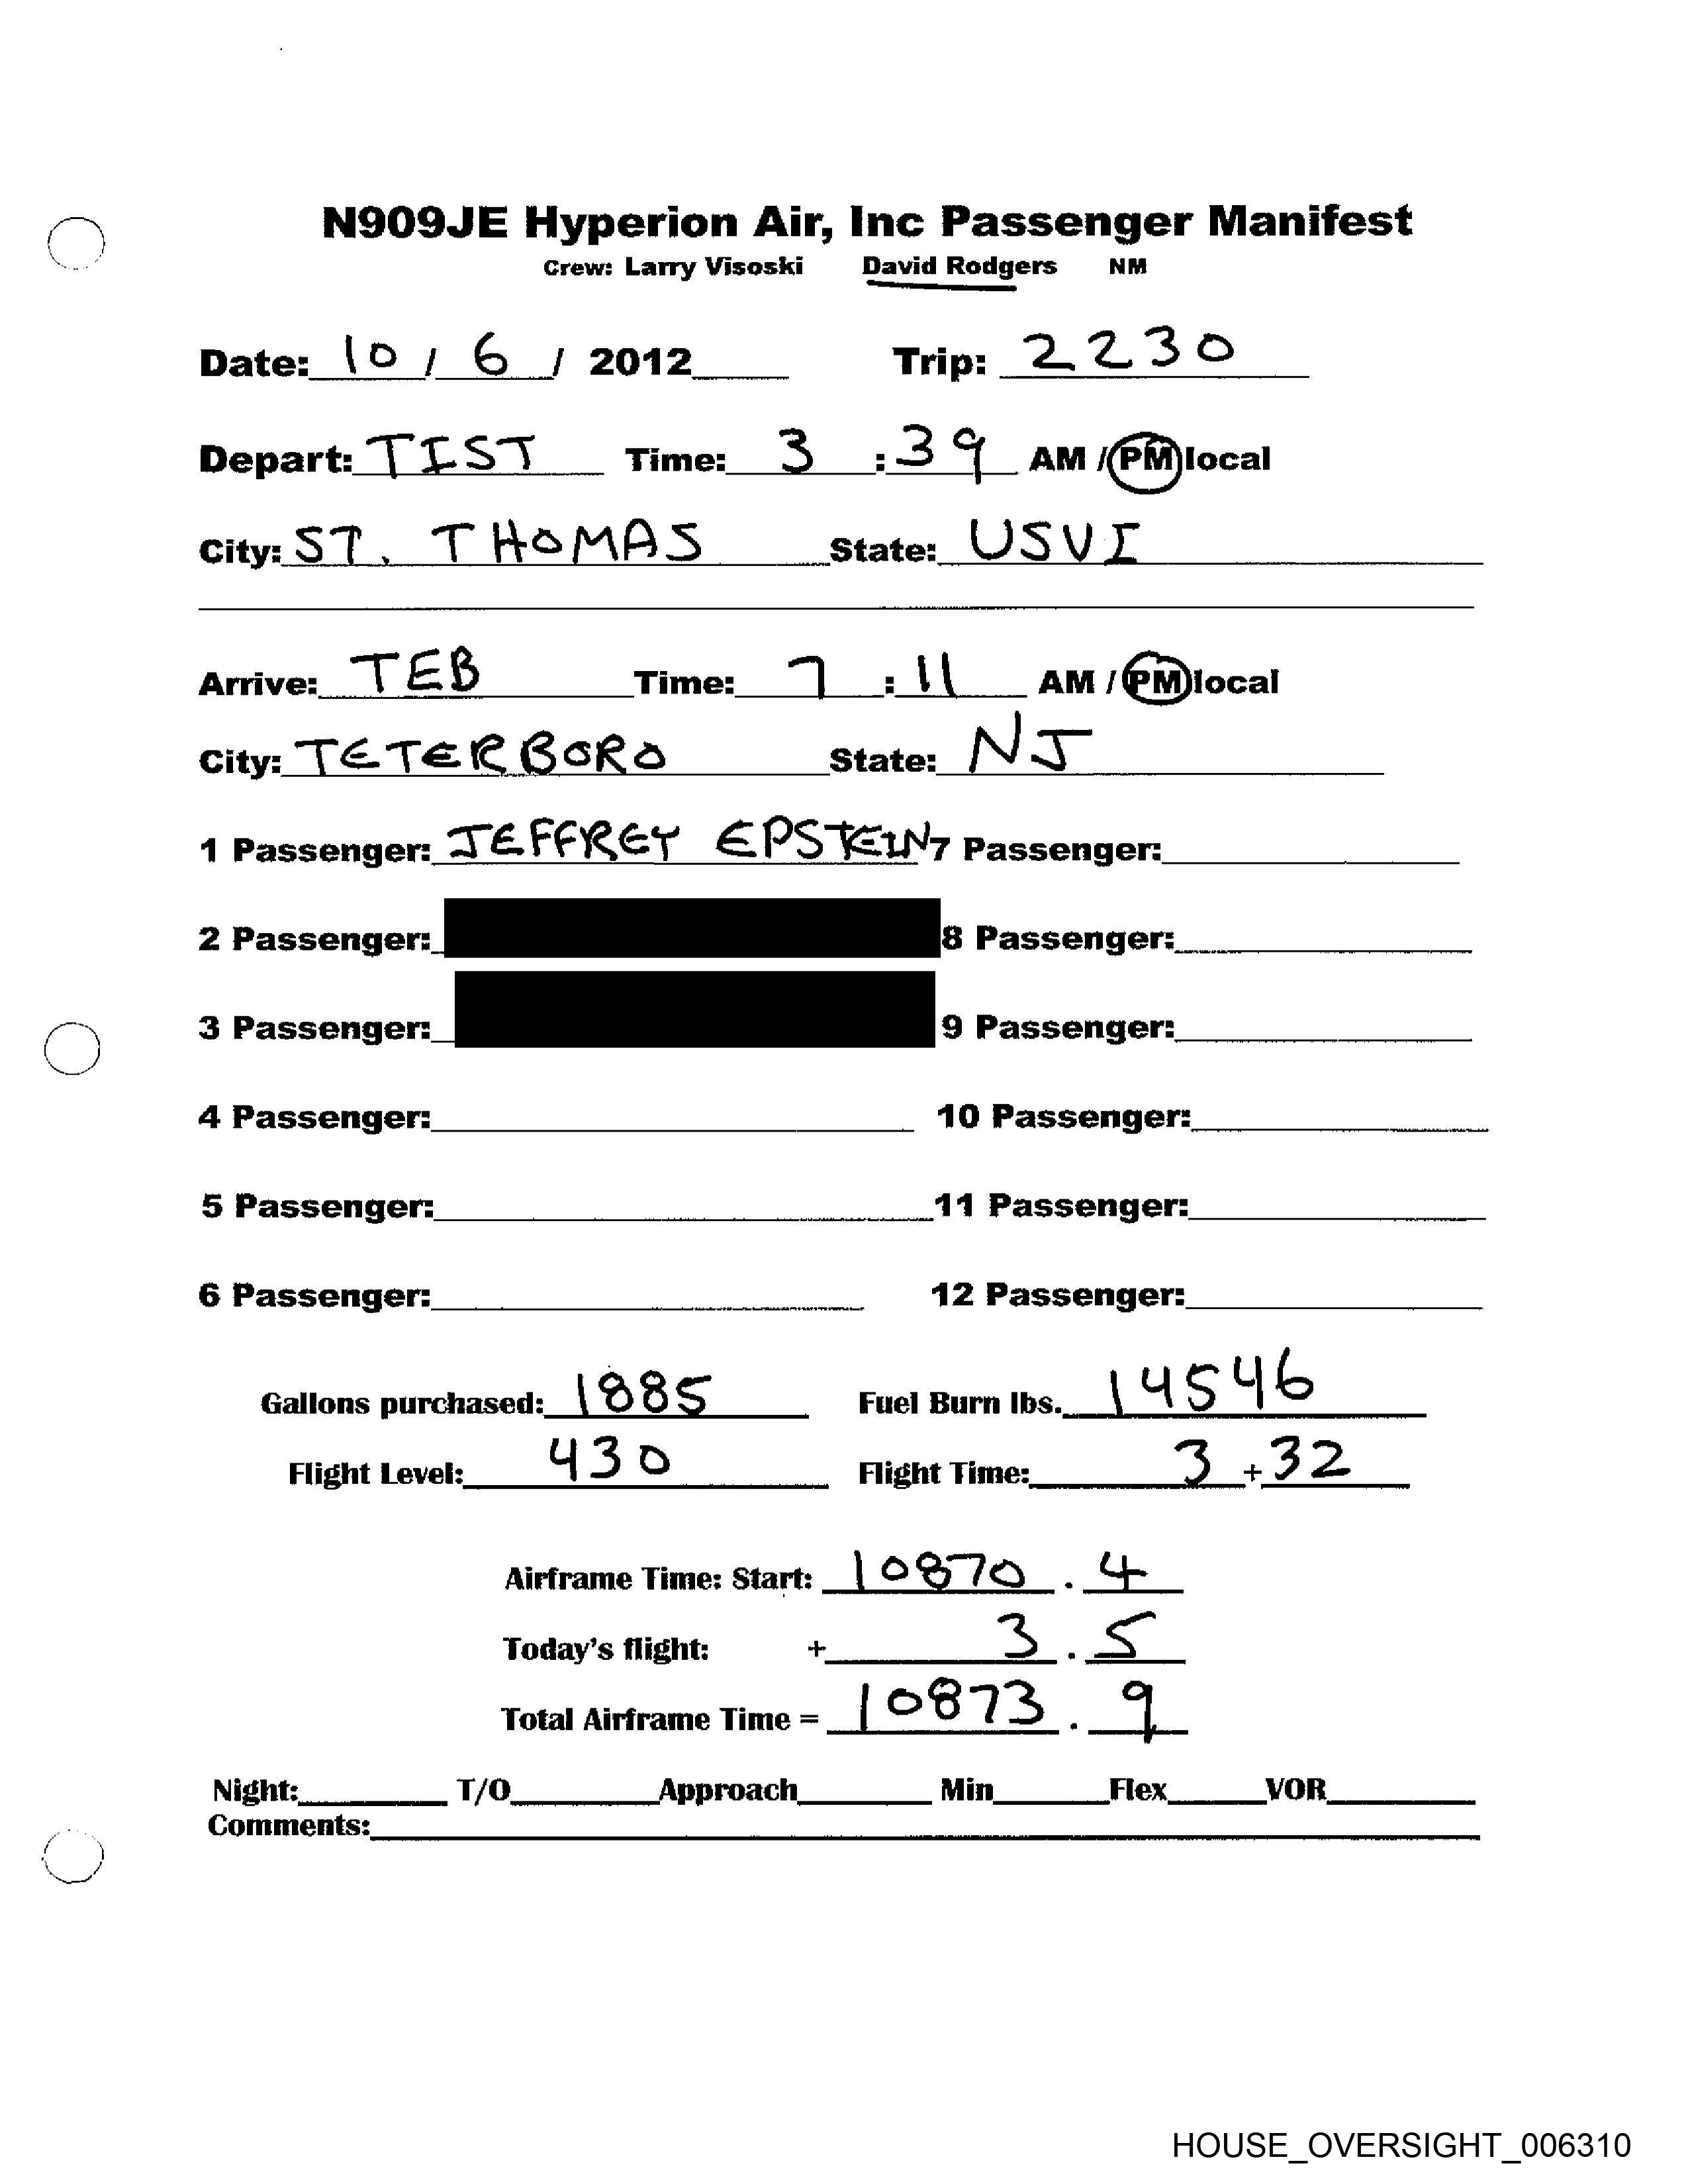 N909JE Hyperion Air, Inc Passenger Manifest
Crew: Larry Visoski David Rodgers NM
Date: 10 / 6 / 2012 Trip: 2230
Depart: TIST Time: 3 : 39 AM / PM local
City: ST. THOMAS State: USVI
Arrive: TEB Time: 7 : 11 AM / PM local
City: TETERBORO State: NJ
1 Passenger: JEFFREY EPSTEIN 7 Passenger:
2 Passenger: 8 Passenger:
3 Passenger: 9 Passenger:
4 Passenger: 10 Passenger:
5 Passenger: 11 Passenger:
6 Passenger: 12 Passenger:
Gallons purchased: 1885 Fuel Burn lbs. 14546
Flight Level: 430 Flight Time: 3 + 32
Airframe Time: Start: 10870 . 4
Today's flight: + 3 . 5
Total Airframe Time = 10873 . 9
Night: T/O Approach Min Flex VOR
Comments:
HOUSE_OVERSIGHT_006310